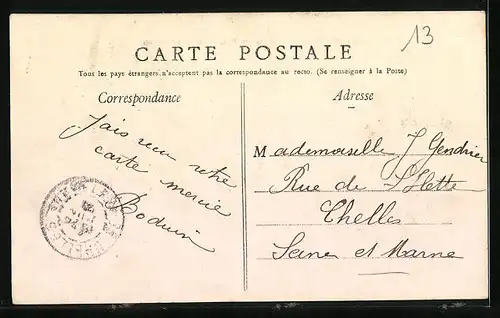 13
CARTE POSTALE
Tous les pays étrangers n'acceptent pas la correspondance au recto. (Se renseigner à la Poste)
Correspondance
Adresse
J'ais reçu votre
carte mercie
Boduin
Mademoiselle J Gendrier
Rue de
Chelles
Seine et Marne